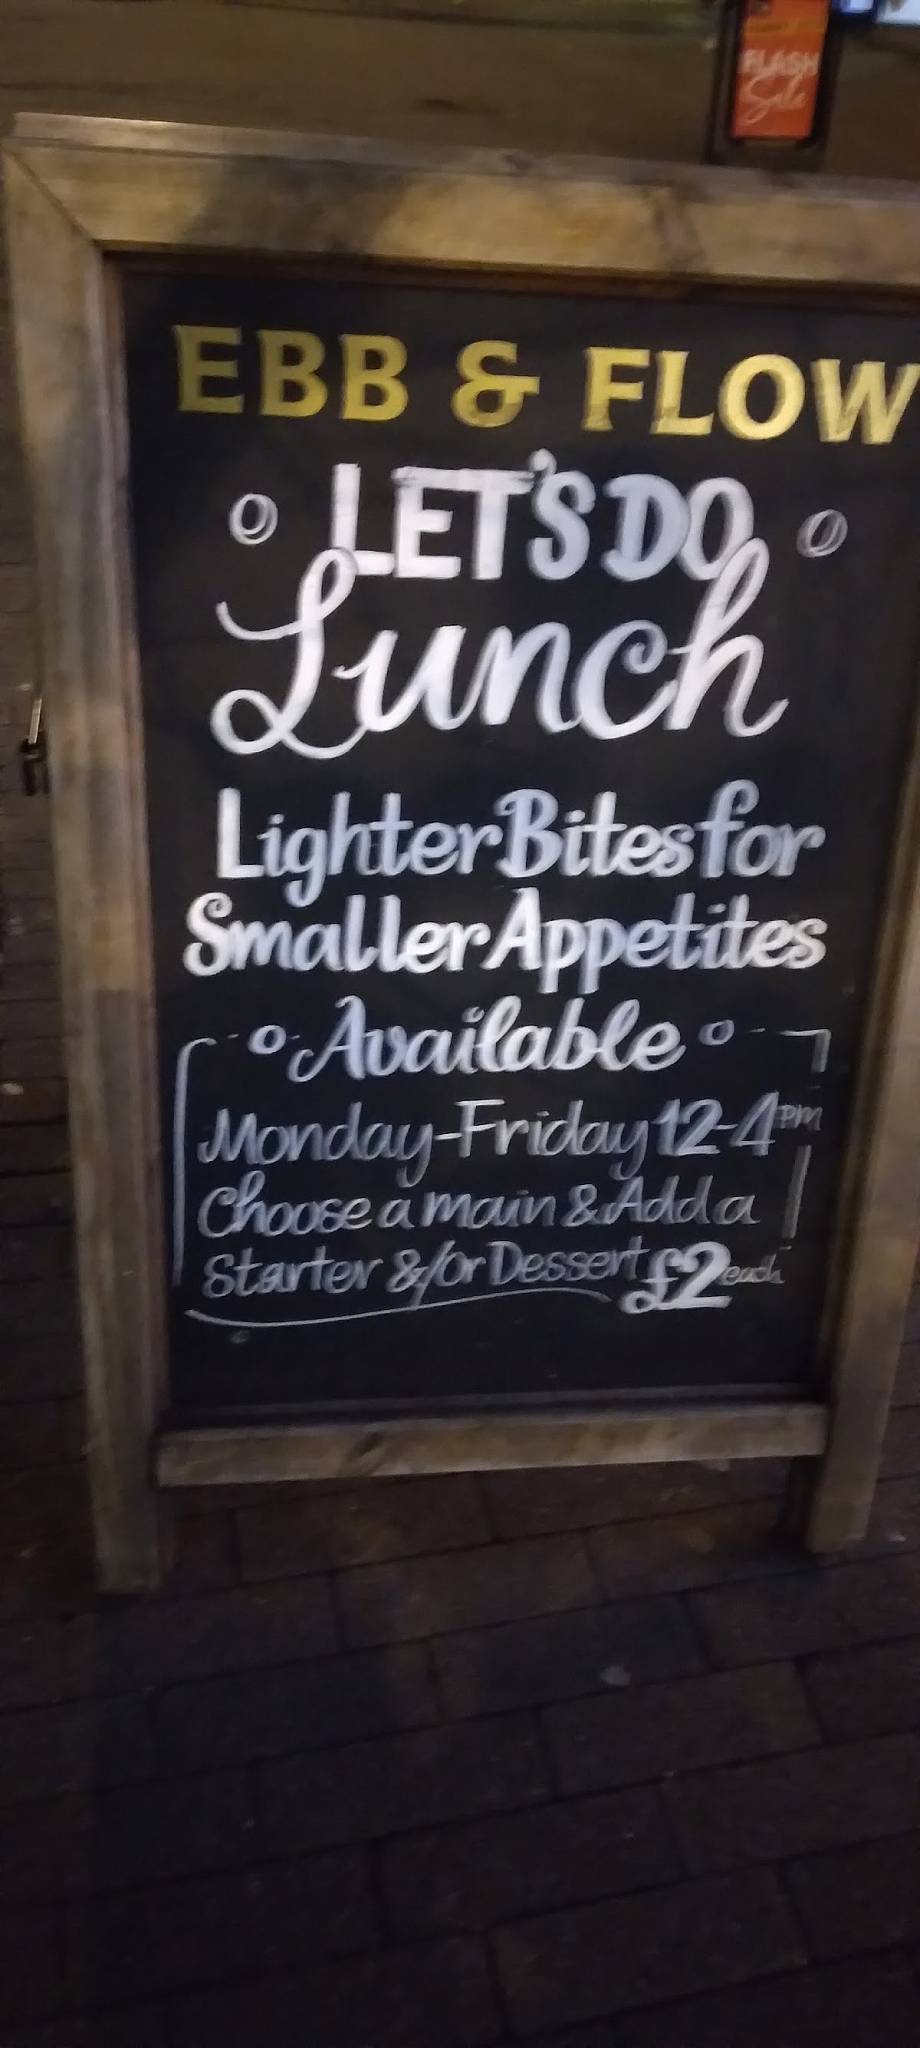 FLASH
Sale
EBB & FLOW
LET'S DO
Lunch
Lighter Bites for
Smaller Appetites
Available
Monday-Friday 12-4PM
Choose a main & Add a
Starter &/or Dessert £2 each